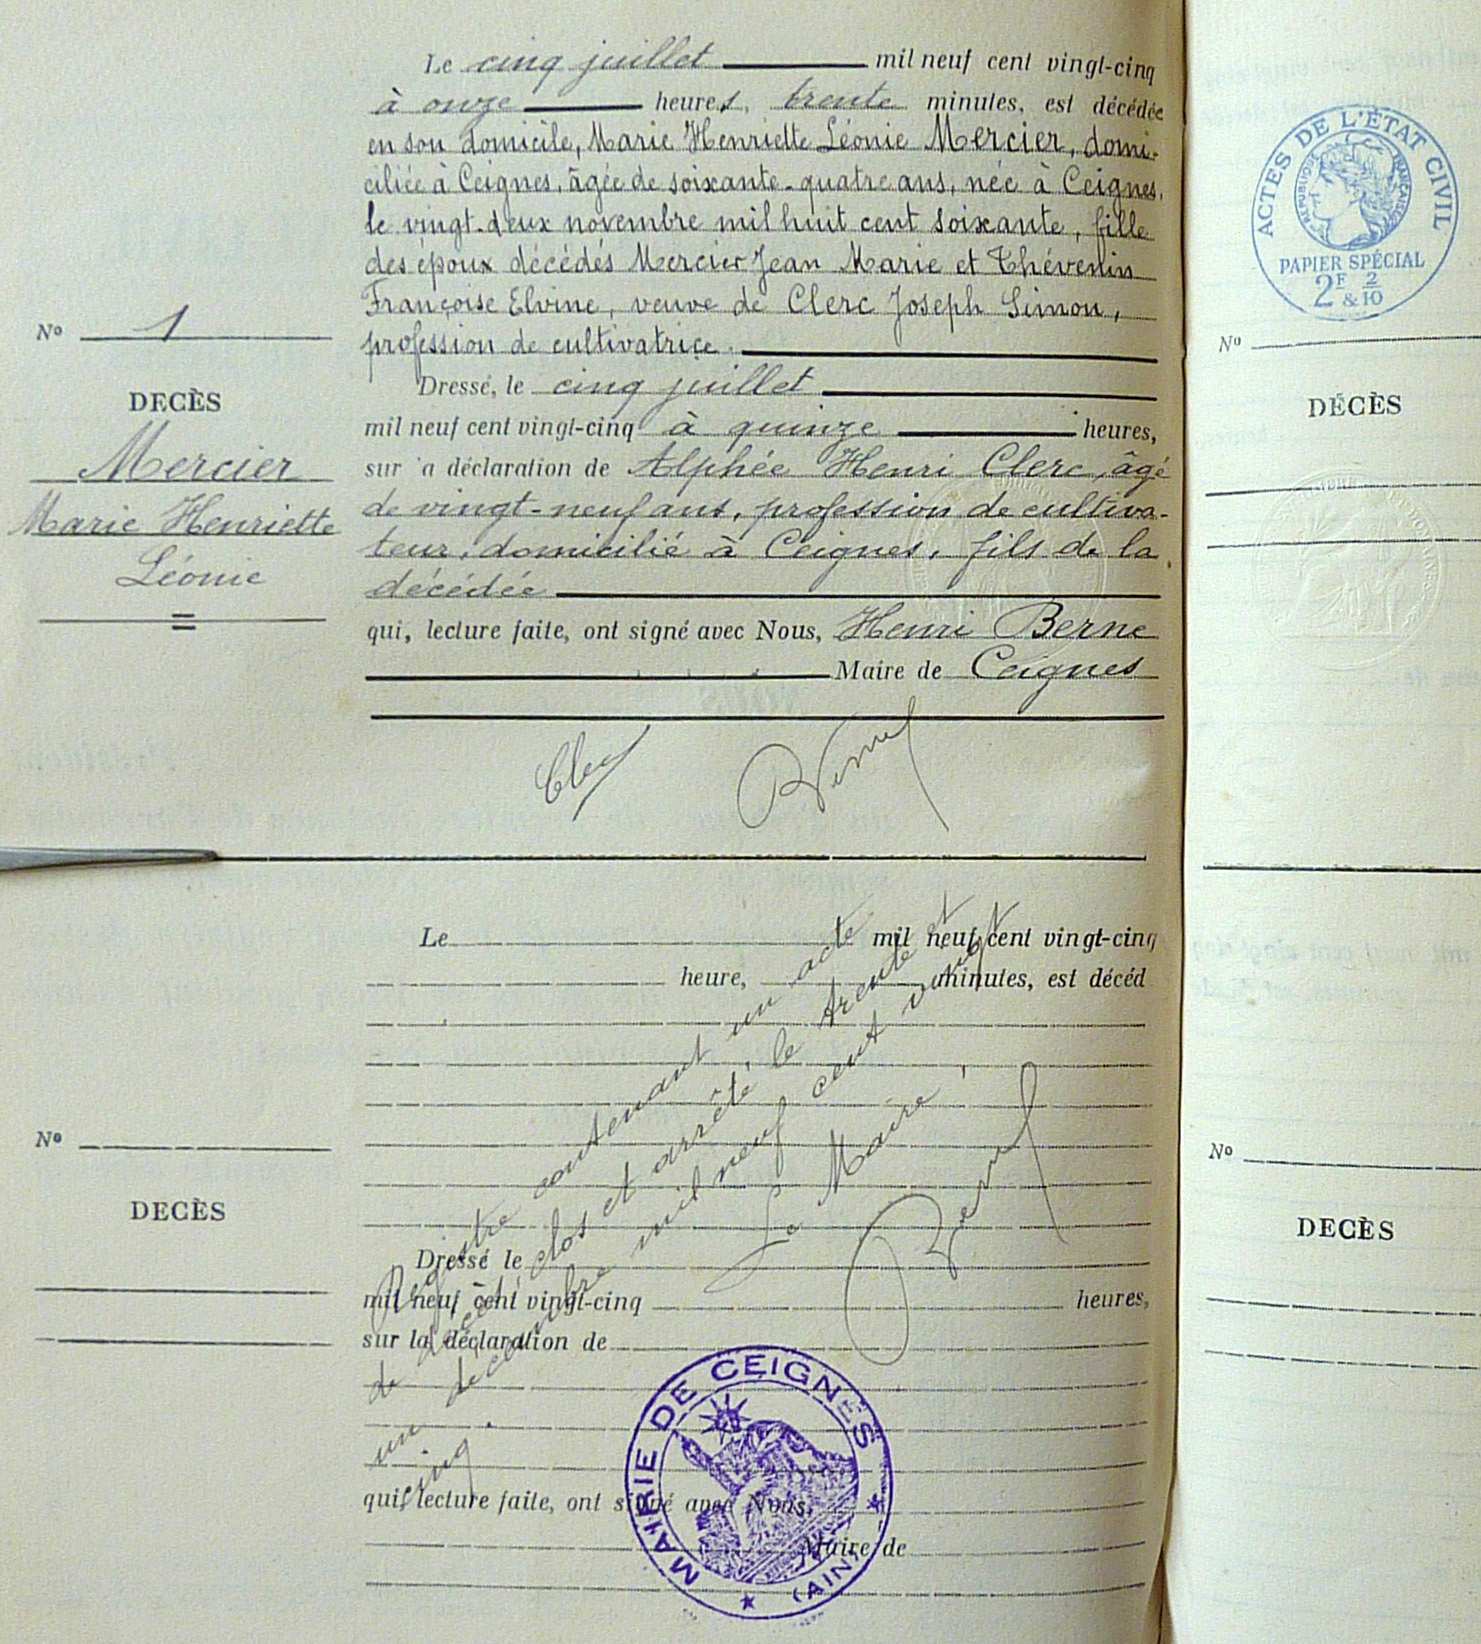 Le cinq juillet mil neuf cent vingt-cinq
à onze heures, trente minutes, est décédée
en son domicile, Marie Henriette Léonie Mercier, domi-
ciliée à Ceignes, âgée de soixante-quatre ans, née à Ceignes,
le vingt-deux novembre mil huit cent soixante, fille
des époux décédés Mercier Jean Marie et Thévenin
Françoise Elvine, veuve de Clerc Joseph Simon,
profession de cultivatrice.
Dressé, le cinq juillet
mil neuf cent vingt-cinq à quinze heures,
sur la déclaration de Alphée Henri Clerc, âgé
de vingt-neuf ans, profession de cultiva-
teur, domicilié à Ceignes, fils de la
décédée
qui, lecture faite, ont signé avec Nous, Henri Berne
Maire de Ceignes
Clerc
Berne
No 1
DECÈS
Mercier
Marie Henriette
Léonie
=
Le mil neuf cent vingt-cinq
heure, minutes, est décéd
Dressé le
mil neuf cent vingt-cinq heures,
sur la déclaration de
qui, lecture faite, ont signé avec Nous,
Maire de
No
DECÈS
Registre contenant un acte
de décès clos et arrêté le trente et
un décembre mil neuf cent vingt
cinq.
Le Maire,
Berne
MAIRIE DE CEIGNES
(AIN)
ACTES DE L'ÉTAT CIVIL
RÉPUBLIQUE FRANÇAISE
PAPIER SPÉCIAL
2F & 2/10
No
DÉCÈS
No
DECÈS